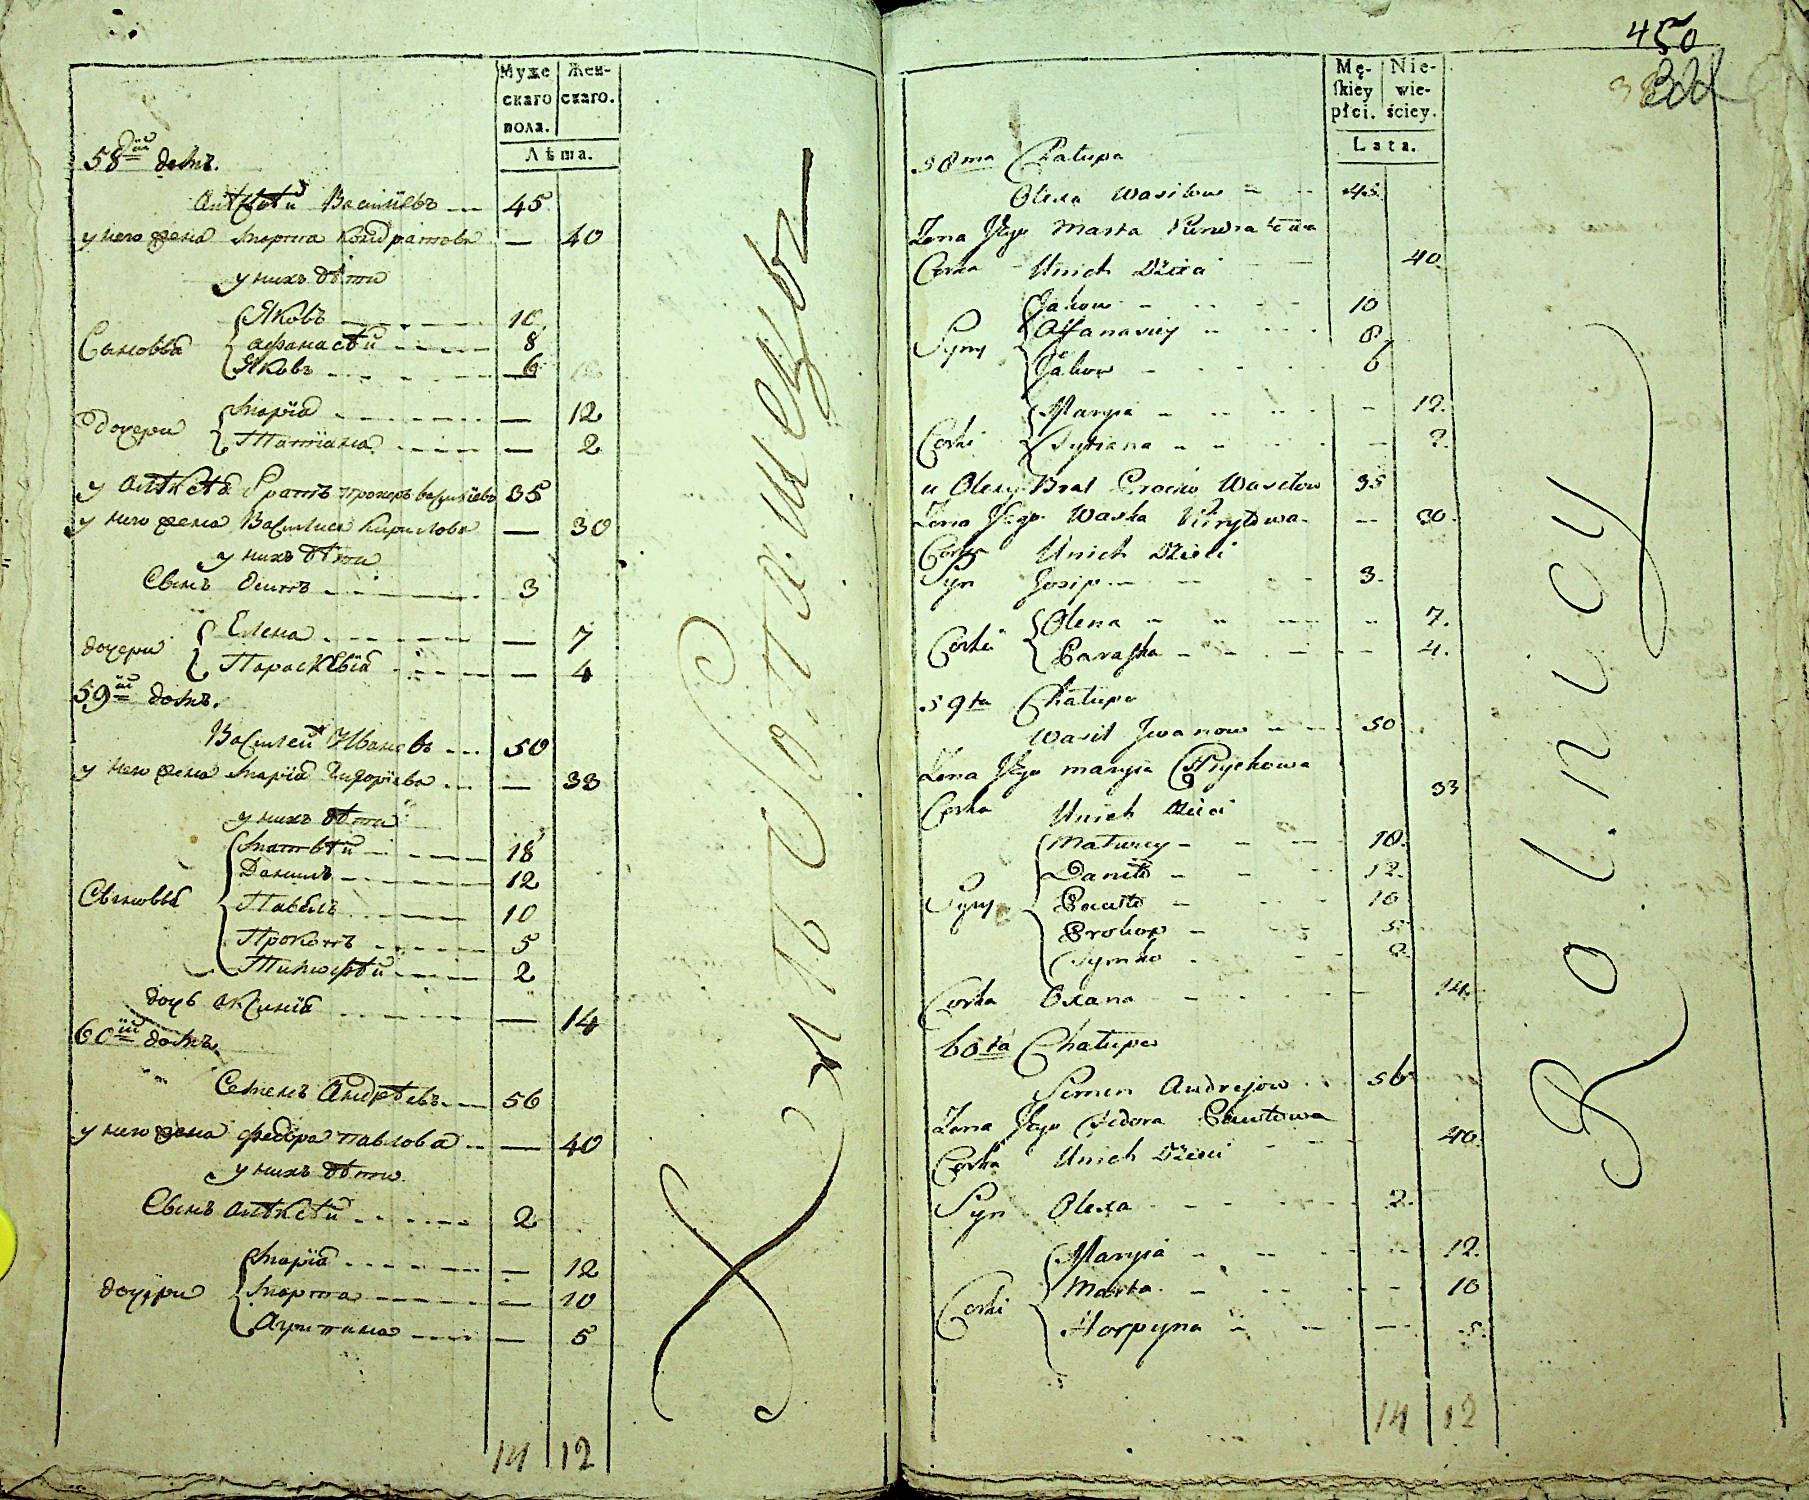 Муже
скаго
пола.
Жен-
скаго.
Лѣта.
58ій домъ.
Алѣксѣй Василіевъ 45
у него жена Марта Кондратова — 40
у нихъ дѣти
Сыновья
Яковъ 10
Афанасѣй 8
Яковъ 6
дочери
Марія — 12
Татіана — 2
у Алѣксѣя братъ Прокопъ Василіевъ 35
у него жена Василиса Кирилова — 30
у нихъ дѣти
Сынъ Осипъ 3
дочери
Елена — 7
Параскевія — 4
59ій домъ.
Василей Ивановъ 50
у него жена Марія — 33
у нихъ дѣти
Сыновья
Матвѣй 18
Данилъ 12
Павелъ 10
Прокопъ 5
Тимофѣй 2
дочь Аксинія — 14
60ій домъ.
Семенъ Андрѣевъ 56
у него жена Федора Павлова — 40
у нихъ дѣти
Сынъ Алѣксѣй 2
дочери
Марія — 12
Марта — 10
Агрипина — 5
14 12
450
Mę-
skiey
płci.
Nie-
wie-
ściey.
Lata.
58ma Chałupa
Olexa Wasilow 45
Żona Jego Marta Kindratowa
Corka Unich Dzieci 40
Syny
Jakow 10
Affanasiey 8
Jakow 6
Corki
Marysia — 12.
Tytiana — 2.
u Olexy Brat Wasilow 35
Żona Jego Waska Kirylowa — 30.
Unich Dzieci
Syn Josip 3.
Corki
Olena 7.
Paraska 4.
59ta Chałupa
Wasil Jwanow 50
Żona Jego marysia
Corka Unich Dzieci 33
Syny
Matwiey 18.
Daniło 12.
Pawło 10
Prokop 5
Tymko 2
Corka Oxana 14.
60ta Chałupa
Semen Andrejow 56
Żona Jego Fedora Pawłowa
Corka Unich Dzieci 40.
Syn Olexa 2.
Corki
Marysia 12.
Marta 10
Horpyna 5.
14 12
Rolnicy